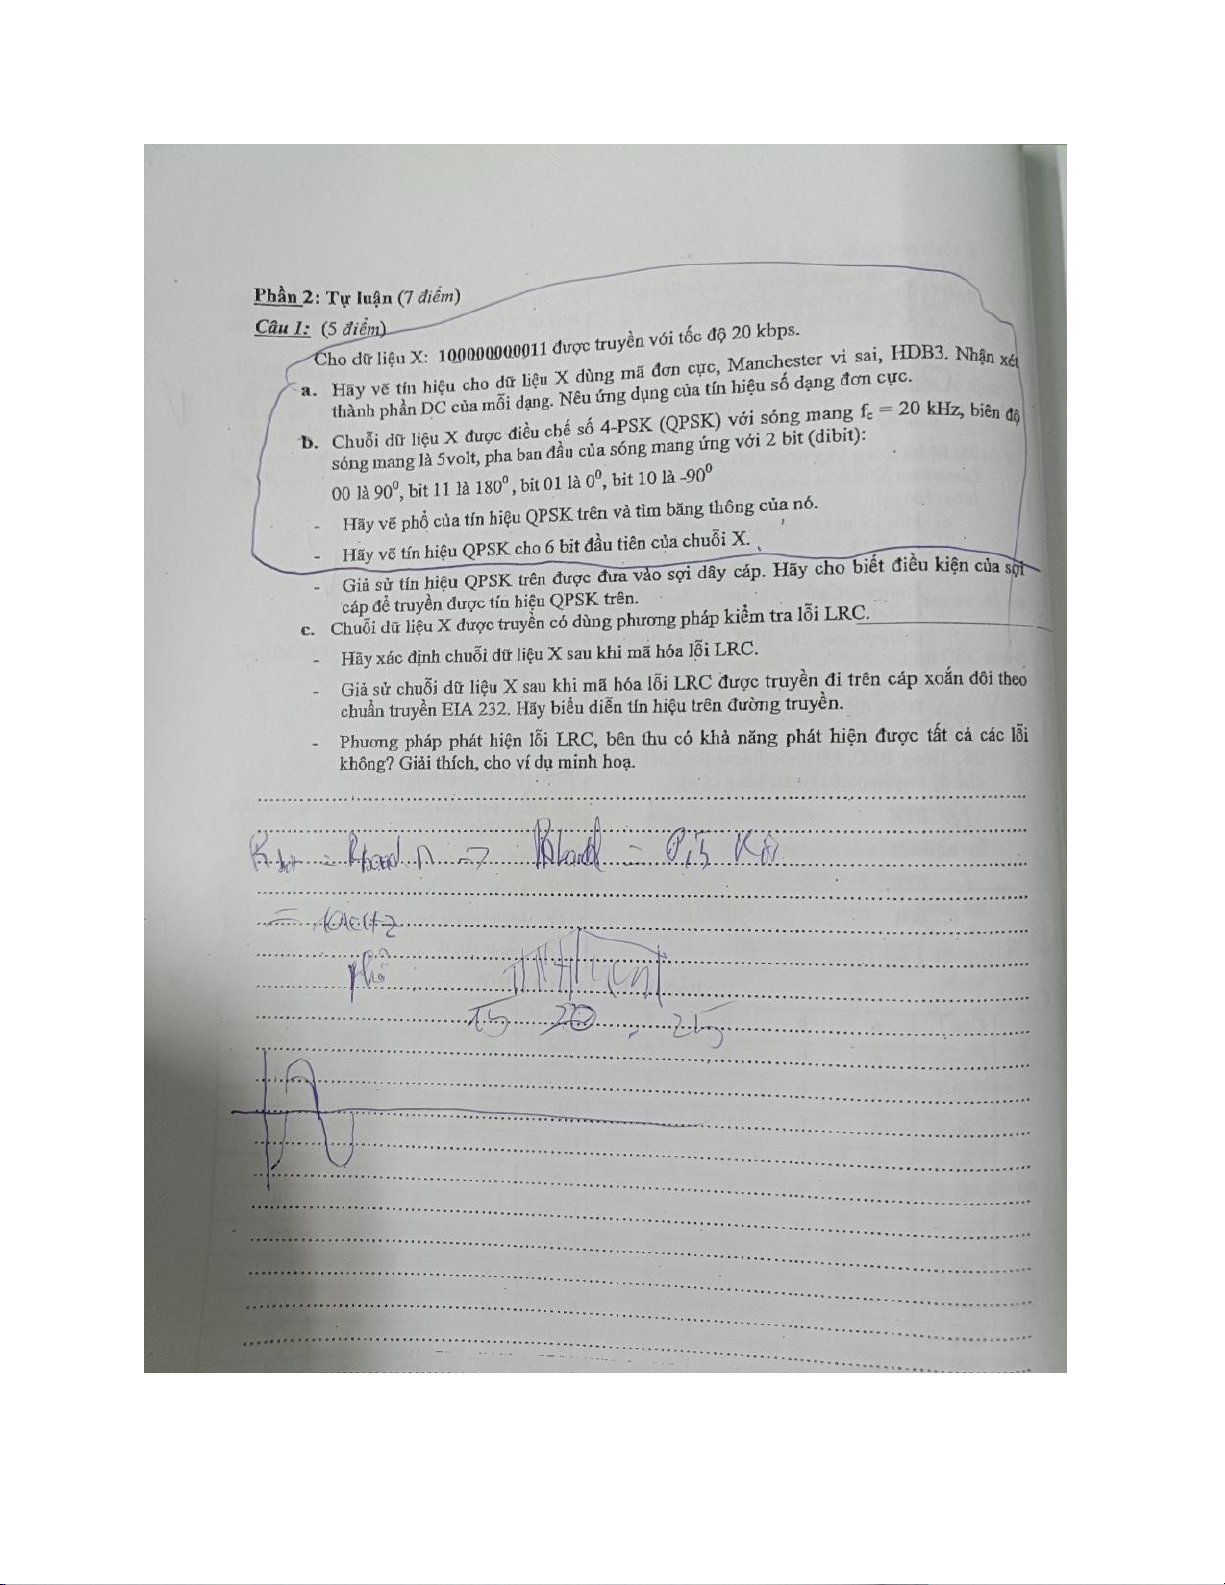 Phần 2: Tự luận (7 điểm)
Câu 1: (5 điểm)
Cho dữ liệu X: 100000000011 được truyền với tốc độ 20 kbps.
a. Hãy vẽ tín hiệu cho dữ liệu X dùng mã đơn cực, Manchester vi sai, HDB3. Nhận xét
thành phần DC của mỗi dạng. Nêu ứng dụng của tín hiệu số dạng đơn cực.
b. Chuỗi dữ liệu X được điều chế số 4-PSK (QPSK) với sóng mang fc = 20 kHz, biên độ
sóng mang là 5volt, pha ban đầu của sóng mang ứng với 2 bit (dibit):
00 là 90⁰, bit 11 là 180⁰, bit 01 là 0⁰, bit 10 là -90⁰
- Hãy vẽ phổ của tín hiệu QPSK trên và tìm băng thông của nó.
- Hãy vẽ tín hiệu QPSK cho 6 bit đầu tiên của chuỗi X.
- Giả sử tín hiệu QPSK trên được đưa vào sợi dây cáp. Hãy cho biết điều kiện của sợi
cáp để truyền được tín hiệu QPSK trên.
c. Chuỗi dữ liệu X được truyền có dùng phương pháp kiểm tra lỗi LRC.
- Hãy xác định chuỗi dữ liệu X sau khi mã hóa lỗi LRC.
- Giả sử chuỗi dữ liệu X sau khi mã hóa lỗi LRC được truyền đi trên cáp xoắn đôi theo
chuẩn truyền EIA 232. Hãy biểu diễn tín hiệu trên đường truyền.
- Phương pháp phát hiện lỗi LRC, bên thu có khả năng phát hiện được tất cả các lỗi
không? Giải thích, cho ví dụ minh hoạ.
= n =>
=
phổ
15 20 25